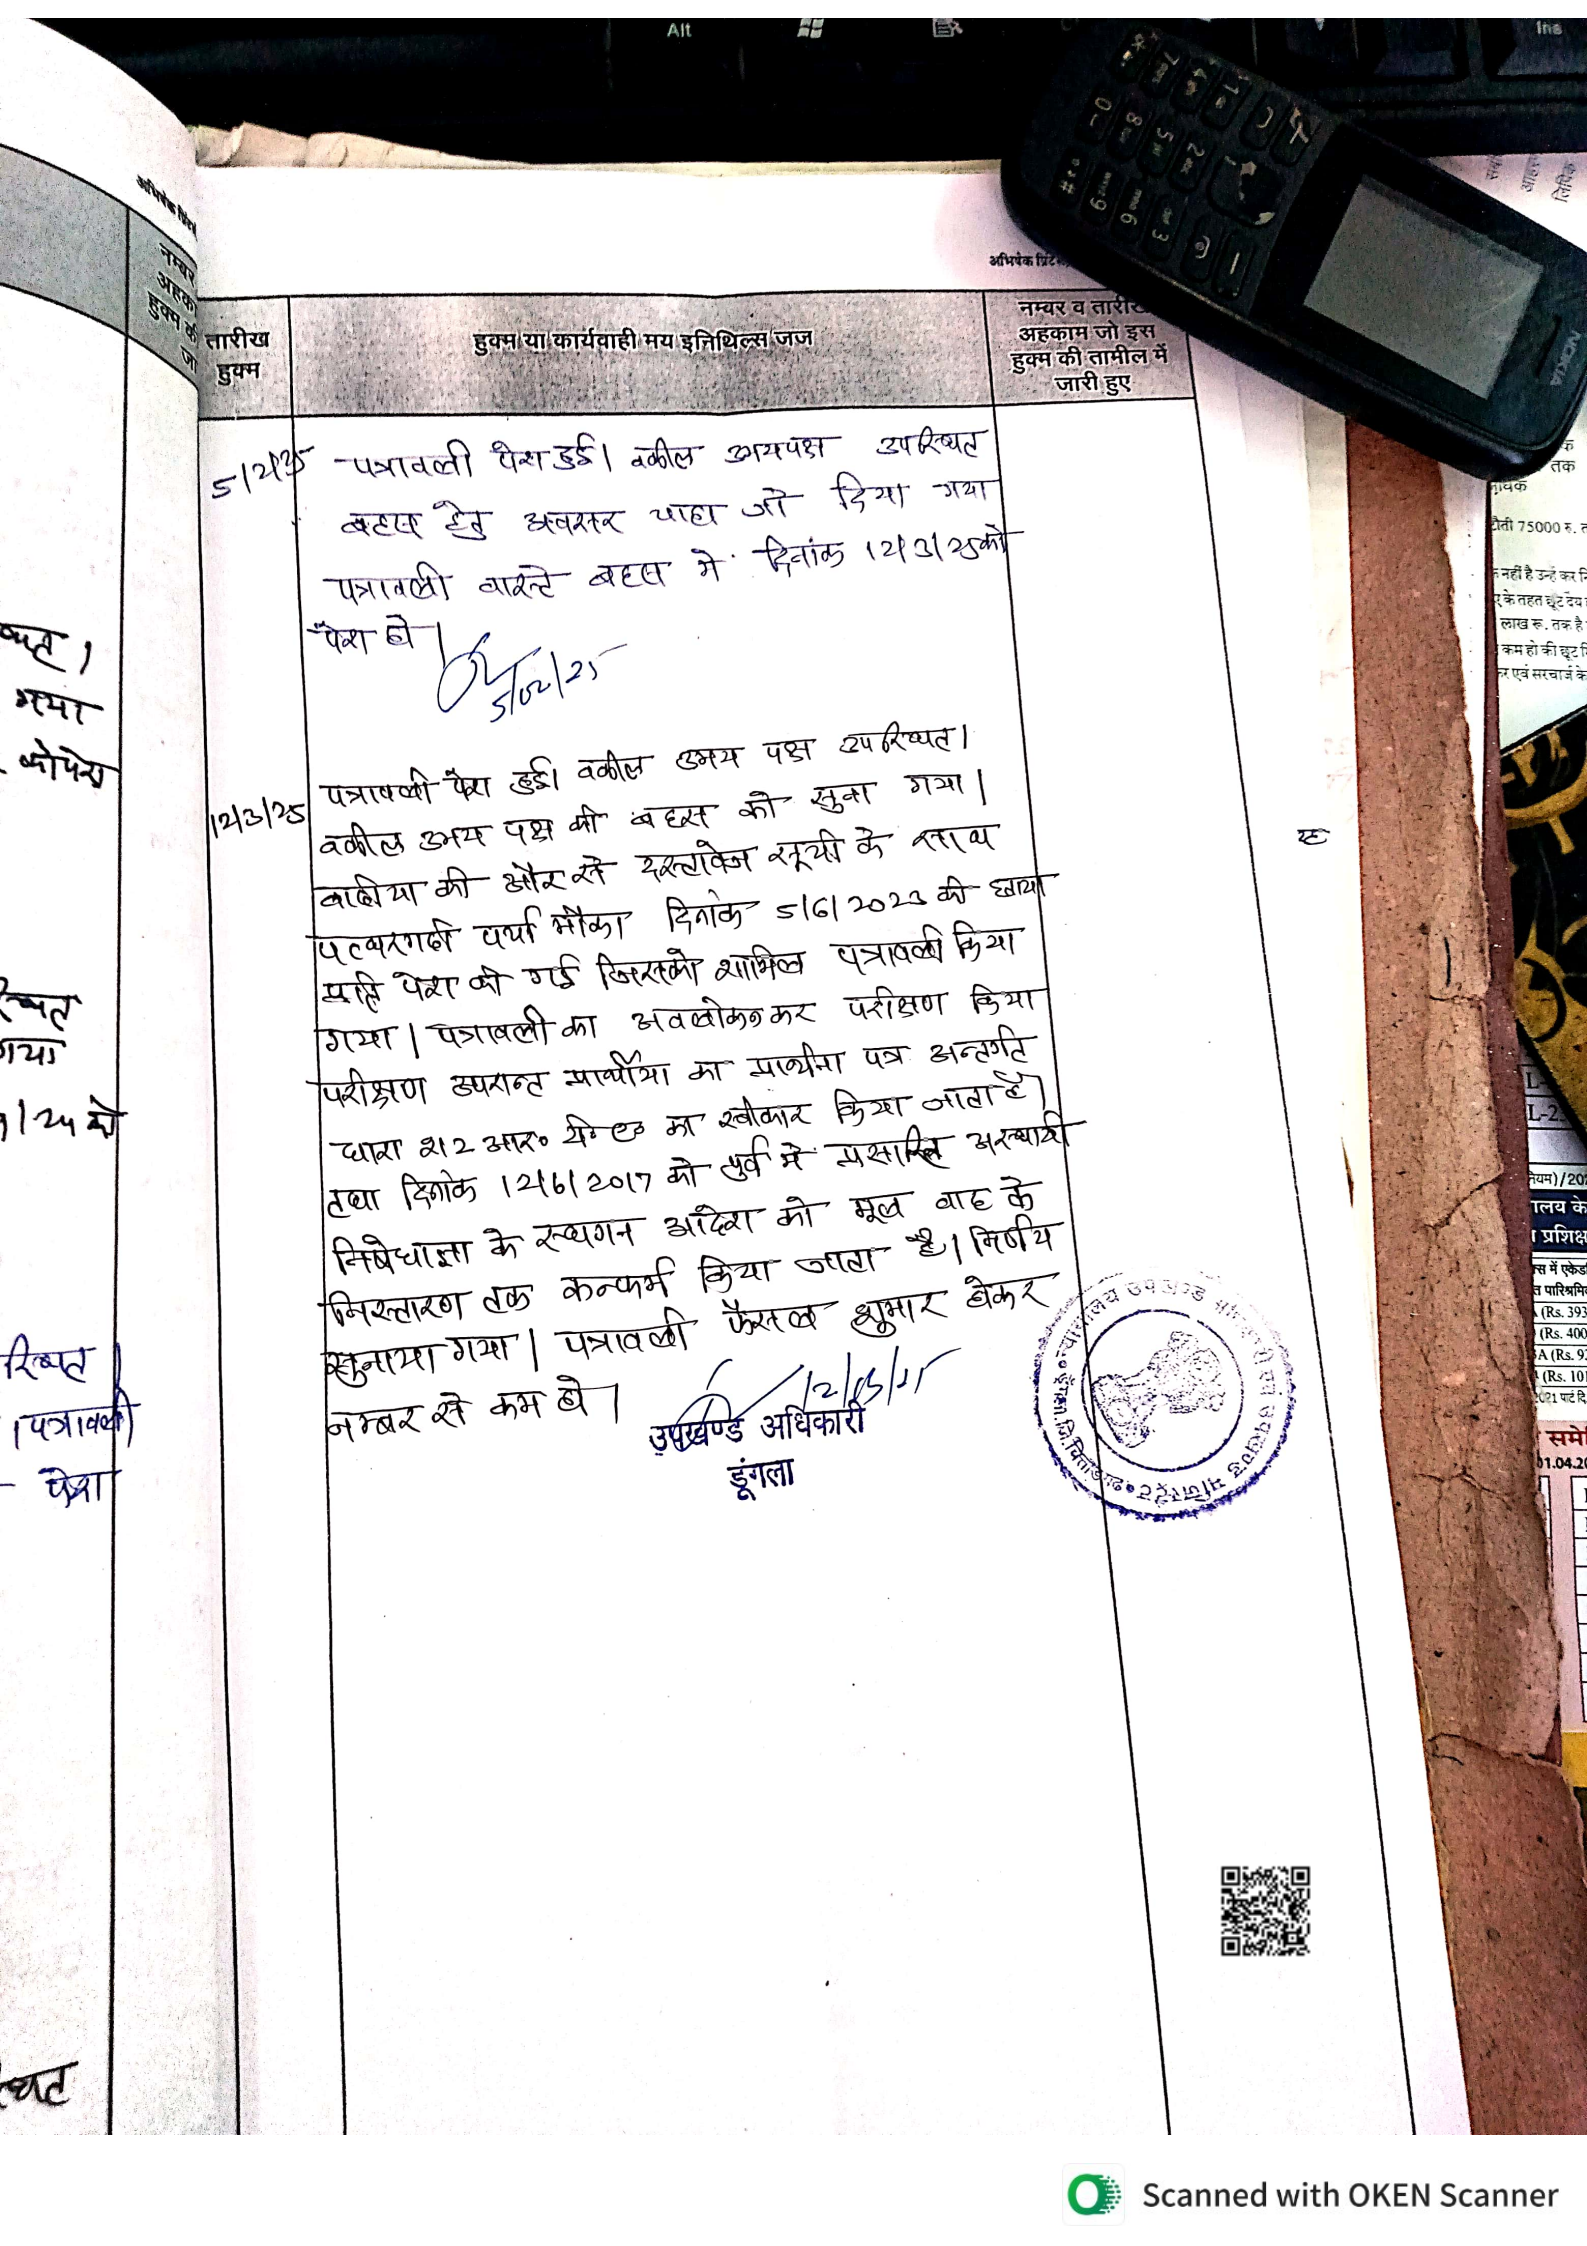 Alt
Ins
NOKIA
अभिषेक प्रिंट
नम्बर
अहका
हुक्म की
जा
तारीख
हुक्म
हुक्म या कार्यवाही मय इनिथिल्स जज
नम्बर व तारीख
अहकाम जो इस
हुक्म की तामील में
जारी हुए
5/2/25 पत्रावली पेश हुई। वकील उभयपक्ष उपस्थित
बहस हेतु अवसर चाहा जो दिया गया
पत्रावली वास्ते बहस में दिनांक 12/3/25 को
पेश हो।
5/02/25
12/3/25 पत्रावली पेश हुई। वकील उभय पक्ष उपस्थित।
वकील उभय पक्ष की बहस को सुना गया।
वादीया की और से दस्तावेज सूची के साथ
पत्थरगढी पर्चा मौका दिनांक 5/6/2023 की छाया
प्रति पेश की गई जिसको शामिल पत्रावली किया
गया। पत्रावली का अवलोकन कर परीक्षण किया
परीक्षण उपरान्त प्रार्थीया का प्रार्थना पत्र अन्तर्गत
धारा 212 आर० का स्वीकार किया जाता है।
तथा दिनांक 12/6/2017 को पूर्व में प्रसारित अस्थायी
निषेधाज्ञा के स्थगन आदेश को मूल वाद के
निस्तारण तक कन्फर्म किया जाता है। निर्णय
सुनाया गया। पत्रावली फैसल शुमार होकर
नम्बर से कम हो।
12/03/25
उपखण्ड अधिकारी
डूंगला
गया
पत्रावली
पेश
ौती 75000 रु.
लाख रू. तक है
Scanned with OKEN Scanner